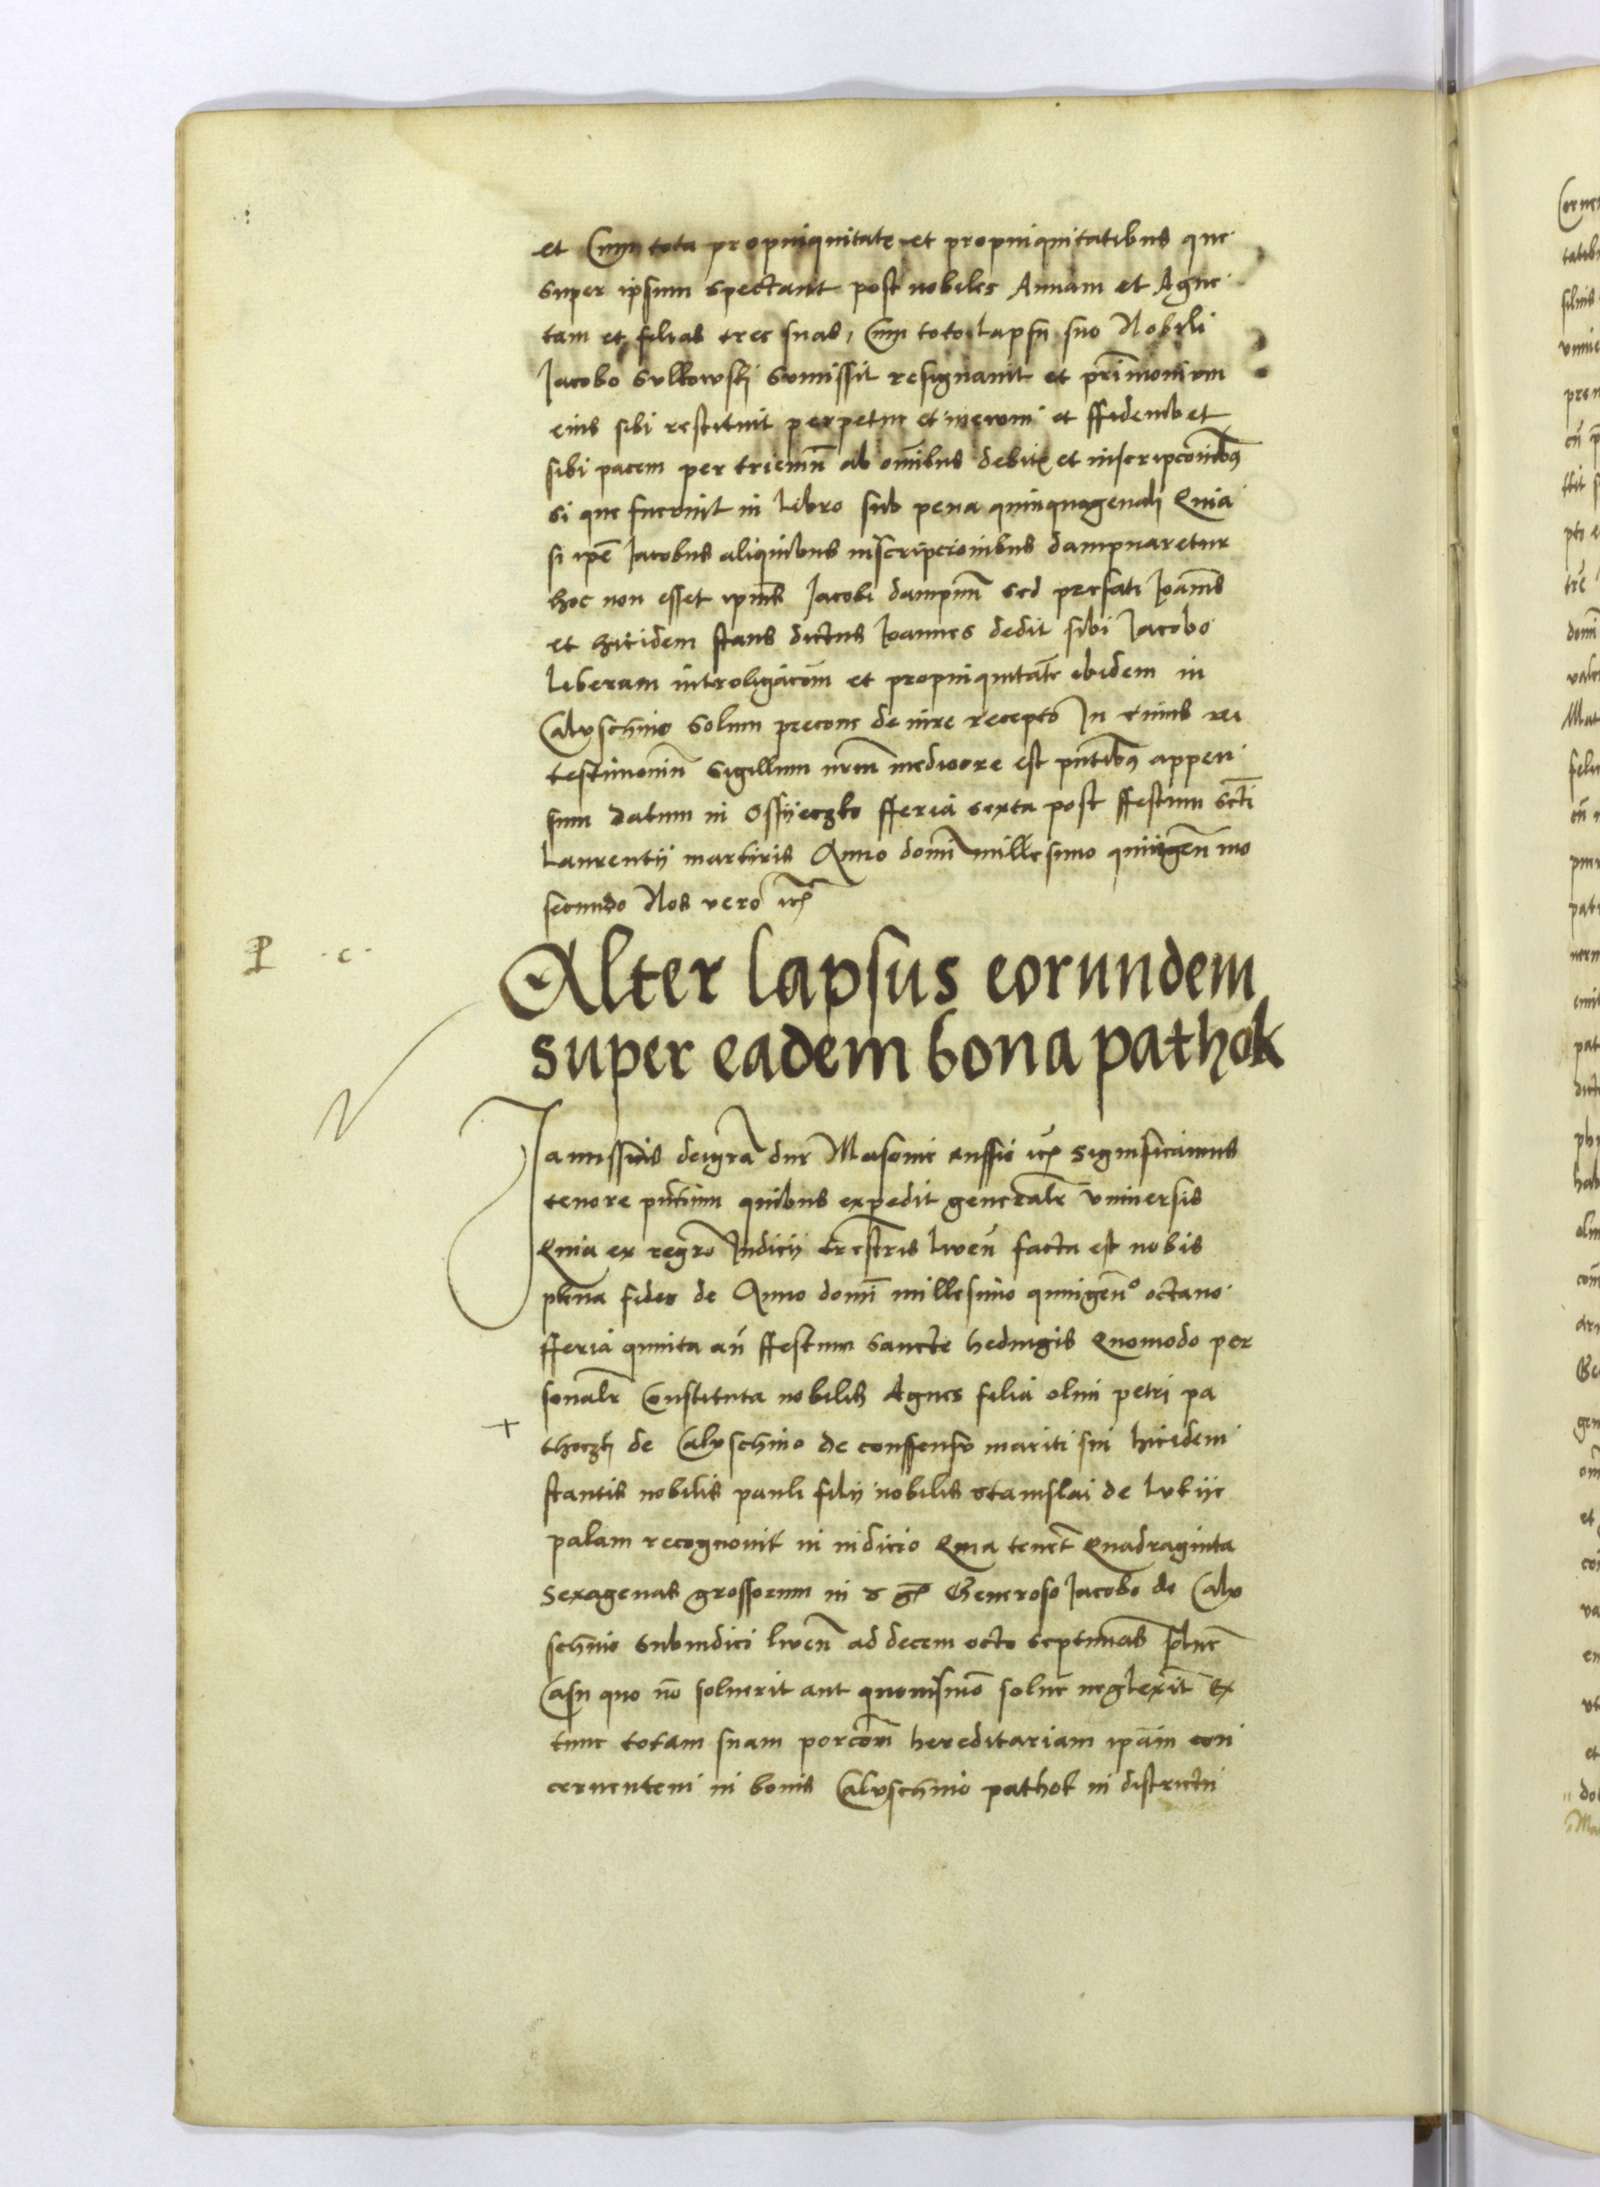 et Cum tota propinquitate et propinquitatibus que
super ipsum spectant post nobiles Annam et Agne
tam et filias tres suas, Cum toto lapsu suo Nobili
Jacobo Sulkowski summissit resignavit et prīmonium
eius sibi restituit perpetue et inevum et ffideiubet
sibi pacem per trieniū ab oībus debitis et inscripcōnibus
si que fuerint in libro sub pena quinquagenali Quia
si ipē Jacobus aliquibus inscripcionibus dampnaretur
hoc non esset ipius Jacobi dampnū sed prefati Joānis
et hicidem stans dictus Joannes dedit sibi Jacobo
liberam introligacōm et propinquitatē ibidem in
Caluschino solum precone de iure recepto In cuius rei
testimoniū sigillum nrm̄ mediocre est pn̄tibus appen
sum Datum in Ossyeczko fferia sexta post ffestum scti
Laurentij martiris Anno domī millesimo quingen mo
secundo Nos vero etc
P · c ·
Alter lapsus eorundem
super eadem bona pathok
Janussius deigra dux Masovie Russie etc significamus
tenore pn̄tium quibus expedit generalr universis
Quia ex regro Judicij trestris liven facta est nobis
plena fides de Anno domī millesimo quingen° octavo
fferia quinta an̄ ffestum sancte hedvigis Quomodo per
sonalr Constituta nobilis Agnes filia olim petri pa
+ thoczki de Caluschino de conssensu mariti sui hicidem
stantis nobilis pauli filij nobilis Stanislai de lukije
palam recognovit in iudicio Quia tenet Quadraginta
sexagenas grossorum in Generoso Jacobo de Calu
schino subiudici liven̄ ad decem octo septimas solve
Casu quo nō solverit aut quovismō solve neglexit Ex
tunc totam suam porcom hereditariam ipam con
cernentem in bonis Caluschino pathok in districtu